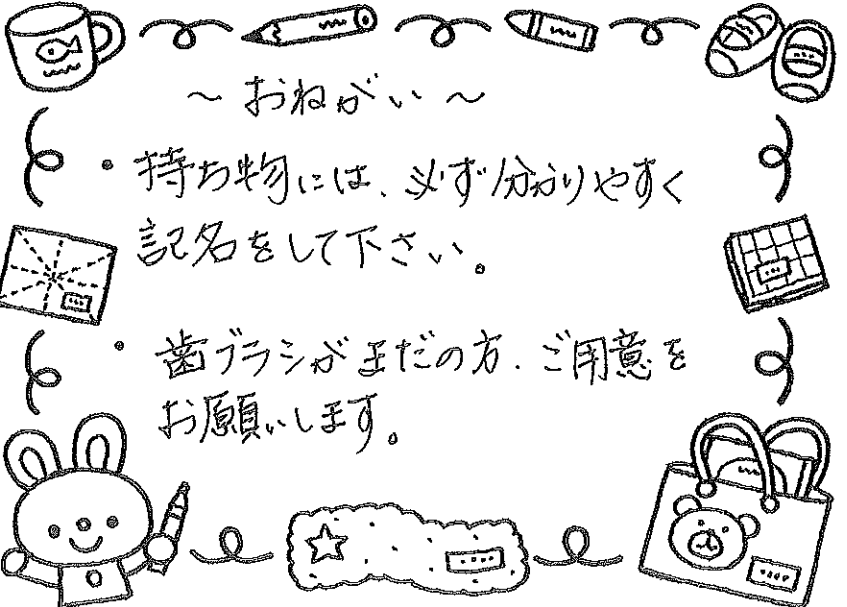 ～おねがい～
・持ち物には、必ず分かりやすく
記名をして下さい。
・歯ブラシがまだの方、ご用意を
お願いします。